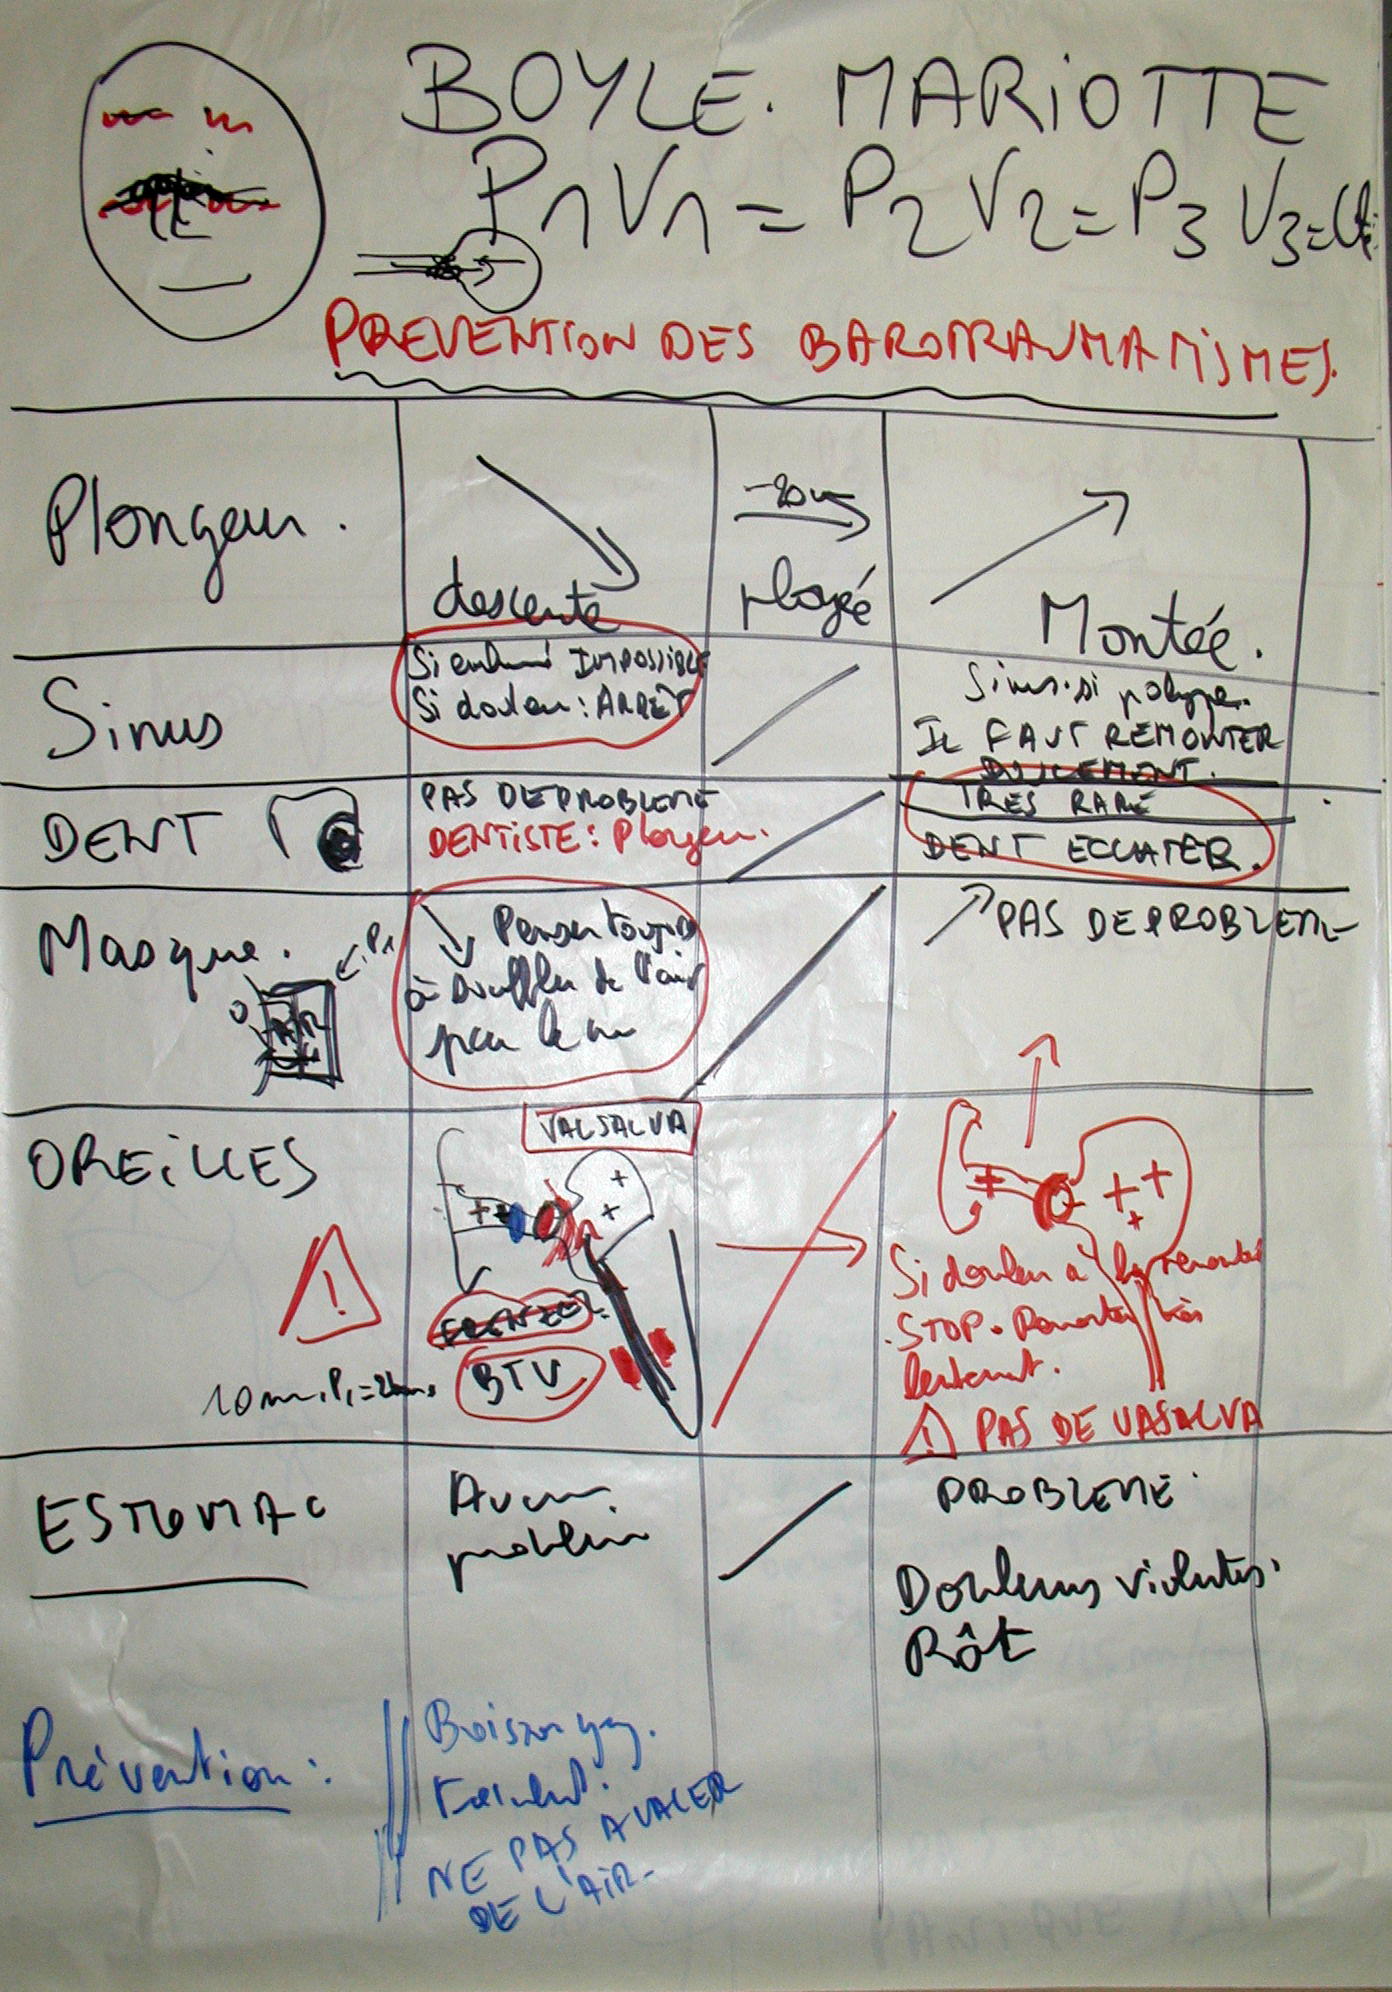 BOYLE. MARIOTTE
P1V1 = P2V2 = P3V3 = Cte
PREVENTION DES BAROTRAUMATISMES.
Plongeur.
descente
-20m
plongée
Montée.
Sinus
Si enrhumé IMPOSSIBLE
Si douleur : ARRET
Sinus. si polype.
IL FAUT REMONTER
DOUCEMENT.
DENT
PAS DE PROBLEME
DENTISTE : Plongeur.
TRES RARE
DENT ECLATER.
Masque.
P1
AIR
Penser toujours
à souffler de l'air
par le nez
PAS DE PROBLEME
OREILLES
VALSALVA
+ +
+
+
!
FRENZEL
BTV
10m. P1 = 2bars
+ +
+
Si douleur à la remontée
STOP. Remonter très
lentement.
! PAS DE VASALVA
ESTOMAC
Aucun
problème
PROBLEME
Douleurs violentes.
Rôt
Prévention :
Boisson gaz.
NE PAS AVALER
DE L'AIR.